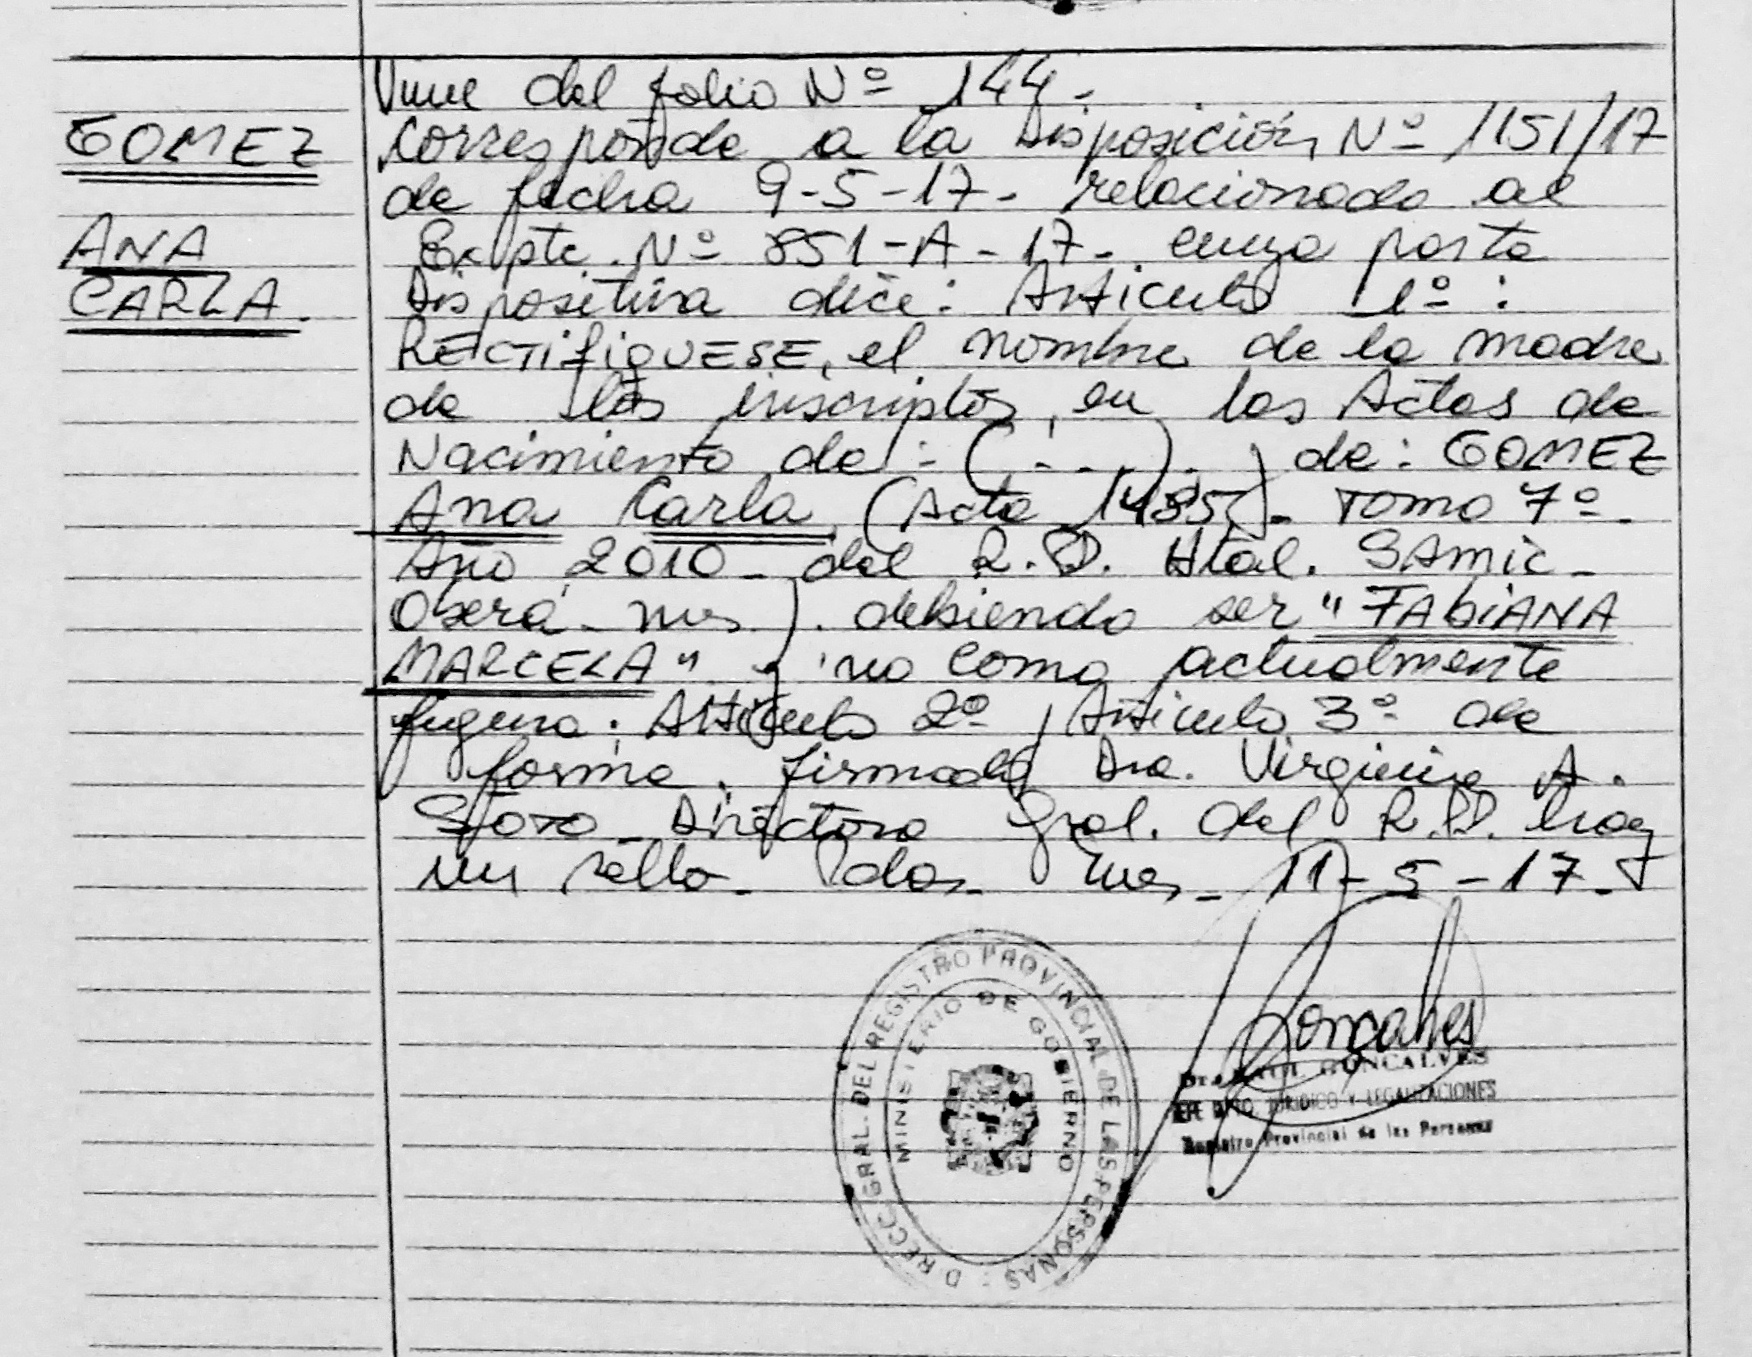 Viene del folio Nº 144-
GOMEZ
ANA
CARLA.
Corresponde a la Disposición Nº 1151/17
de fecha 9-5-17- relacionado al
Expte. Nº 851-A-17- cuya parte
Dispositiva dice: Artículo 1º:
RECTIFIQUESE, el nombre de la madre
de los inscriptos, en las Actas de
Nacimiento de: (...). de: GOMEZ
Ana Carla, (Acta 1485)- Tomo 7º-
Año 2010- del R.P. Htal. SAMIC-
Oberá- Mnes.). debiendo ser "FABIANA
MARCELA" y no como actualmente
figura; Artículo 2º, Artículo 3º de
forma. firmado Dra. Virginia A.
Directora Gral. del R.P. hay
un sello- Pdas- Mnes- 11-5-17-
Goncalves
GONCALVES
JEFE DPTO. JURIDICO Y LEGALIZACIONES
Registro Provincial de las Personas
DIRECC. GRAL. DEL REGISTRO PROVINCIAL DE LAS PERSONAS
MINISTERIO DE GOBIERNO